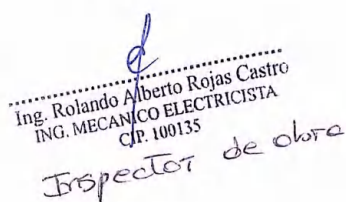 Ing. Rolando Alberto Rojas Castro
ING. MECANICO ELECTRICISTA
CIP. 100135
Inspector de obra